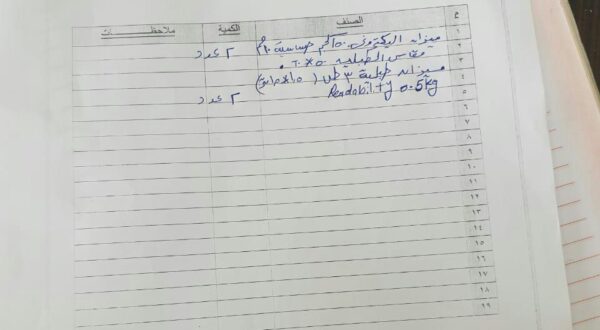 م الصنف الكمية ملاحظـــــــات
١ ميزان اليكتروني ١٥٠كجم حساسية ٢٠جم ٢ عدد
٢ مقاس الطبلية ٥٠*٦٠
٣ ميزان طبلية ٣ طن
٤ Readabilty 0.5kg ٢ عدد
٥
٦
٧
٨
٩
١٠
١١
١٢
١٣
١٤
١٥
١٦
١٧
١٨
١٩